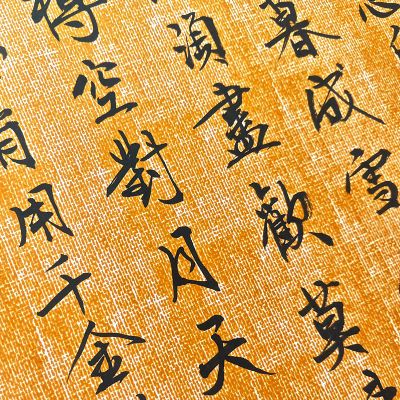 暮成雪
須盡歡莫
樽空對月天
有用千金